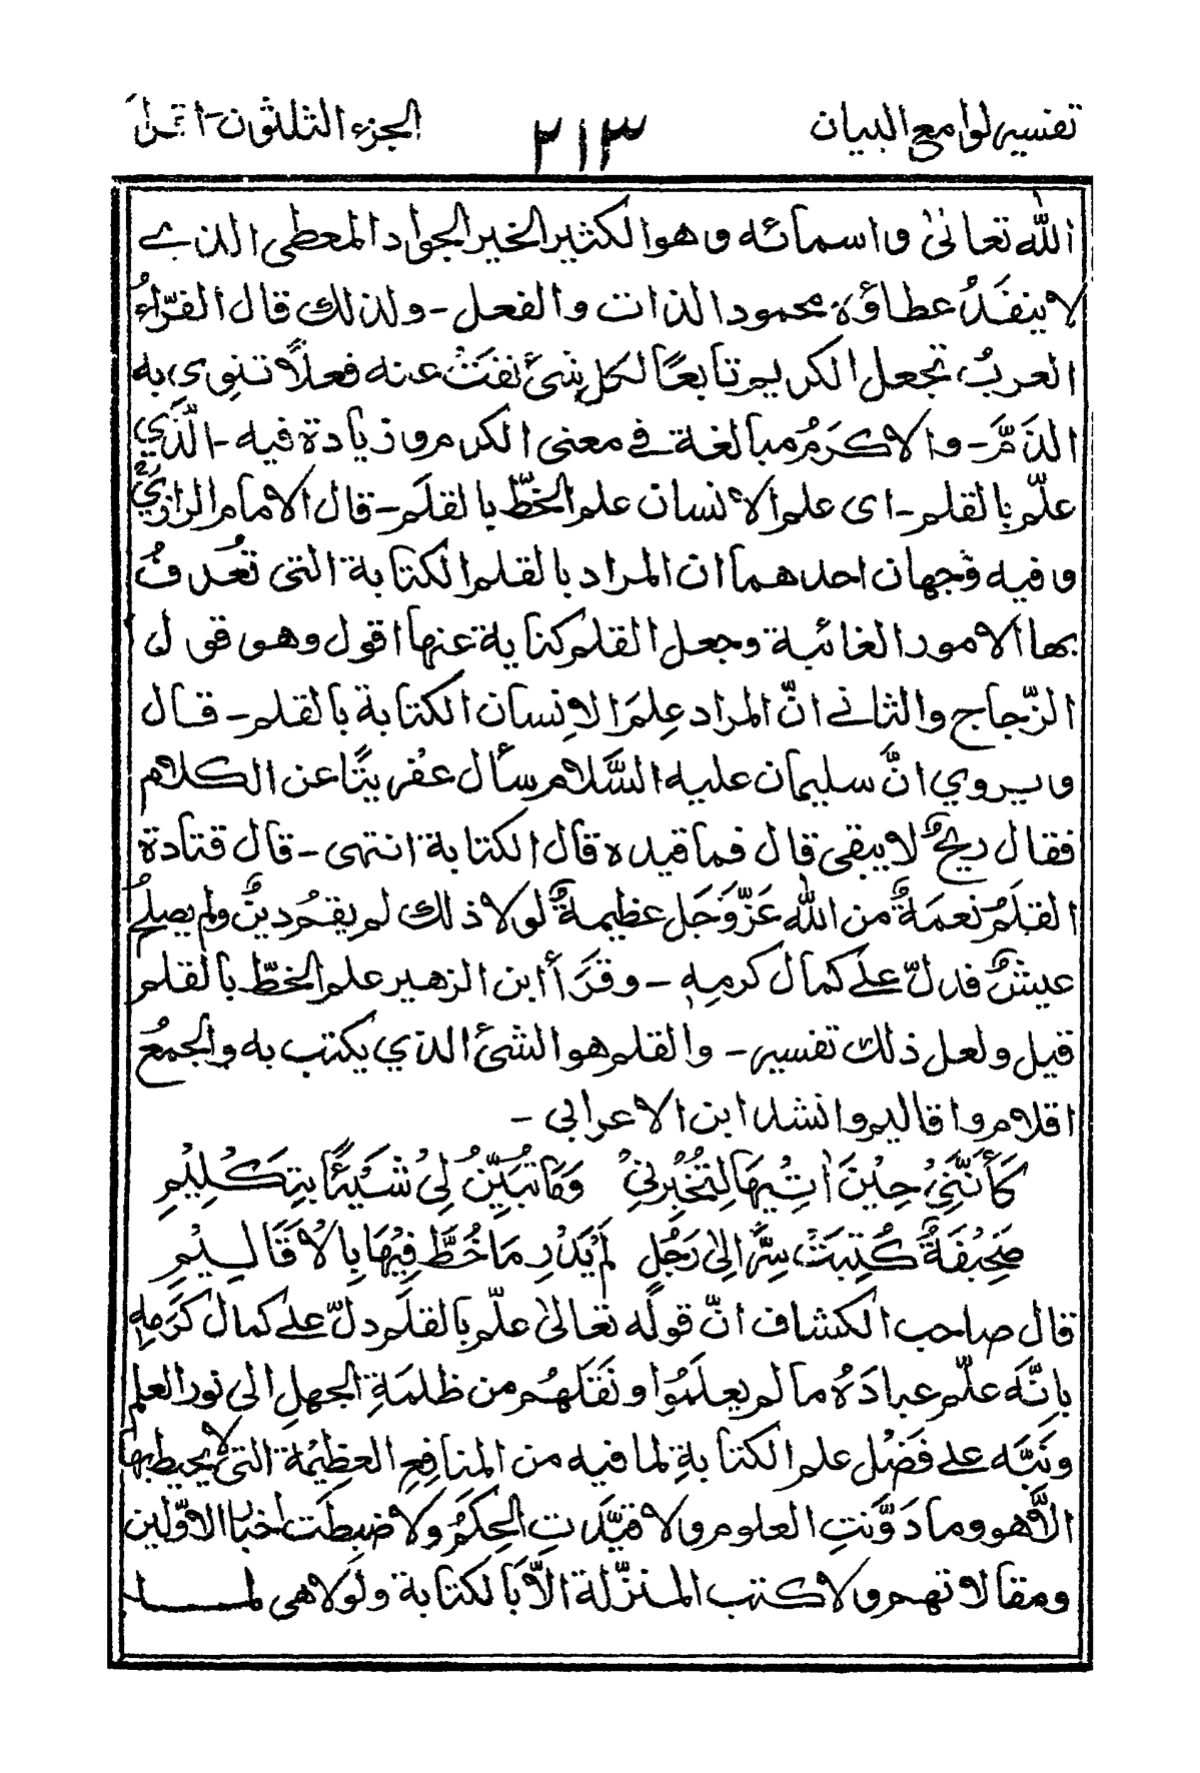 تفسير لوامع البيان ٢١٣ الجزء الثلثون - اقرأ
الله تعالىٰ واسمائه وهو الكثير الخير الجواد المعطى الذے
لا ينفَدُ عطاؤه محمود الذات والفعل - ولذلك قال الفرّاءُ
العربُ تجعل الكريم تابعًا لكل شئ نفَتْ عنه فعلًا تنوي به
الذمَّ - والاكرَمُ مبالغة فے معنى الكرم وزيادة فيه - الَّذي
علّم بالقلم - اى علم الانسان علم الخطّ بالقلَم - قال الامام الرازيّ
وفيه وجهان احدهما ان المراد بالقلم الكتابة التى تُعرفُ
بها الامور الغائبة وجعل القلم كناية عنها اقول وهو قول
الزّجاج والثانے انّ المراد علِمَ الانسان الكتابة بالقلم - قال
ويروي انَّ سليمان عليه السَّلام سأل عفريتًا عن الكلام
فقال ريحٌ لا يبقى قال فما قيده قال الكتابة انتهى - قال قتادة
القلَمُ نعمَةٌ من الله عَزَّوَجَل عظيمةٌ لولا ذلك لم يقم دينٌ ولم يصلُح
عيشٌ فدلّ علے كمال كرمِه - وقَرَأ ابن الزهير علم الخطّ بالقلم
قيل ولعل ذلك تفسير - والقلم هو الشئ الذي يكتب به والجمعُ
اقلام واقاليم وانشد ابن الاعرابي -
كَأَنَّنِيْ حِيْنَ اٰتِيْهَا لِتُخْبِرَنِيْ وَمَا تُبَيِّنُ لِيْ شَيْئًا بِتِكْلِيْمِ
صَحِيْفَةٌ كُتِبَتْ سِرًّا اِلىٰ رَجُلٍ لَمْ يَدْرِ مَا خُطَّ فِيْهَا بِالْاَقَالِيْمِ
قال صاحب الكشاف انّ قوله تعالىٰ علّم بالقلَم دلّ علے كمال كرَمِه
بانَّه علّم عبادَهُ ما لم يعلَمُوا ونَقَلَهُم من ظلمَةِ الجهلِ الى نور العلم
ونَبَّه على فَضْلِ علم الكتابةِ لما فيه من المنافِعِ العظِيْمَة التى لا يحيط بها
الَّا هو وما دَوَّنتِ العلوم ولا قيّدتِ الحِكَمُ ولا ضبطَت اخبار الاوّلين
ومقالاتهم ولا كتب المنزّلة الّا بالكتابة ولولا هى لمــا